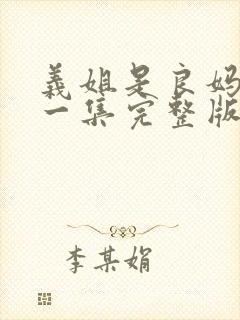 義姐是良妈
一集完整版
李某娟